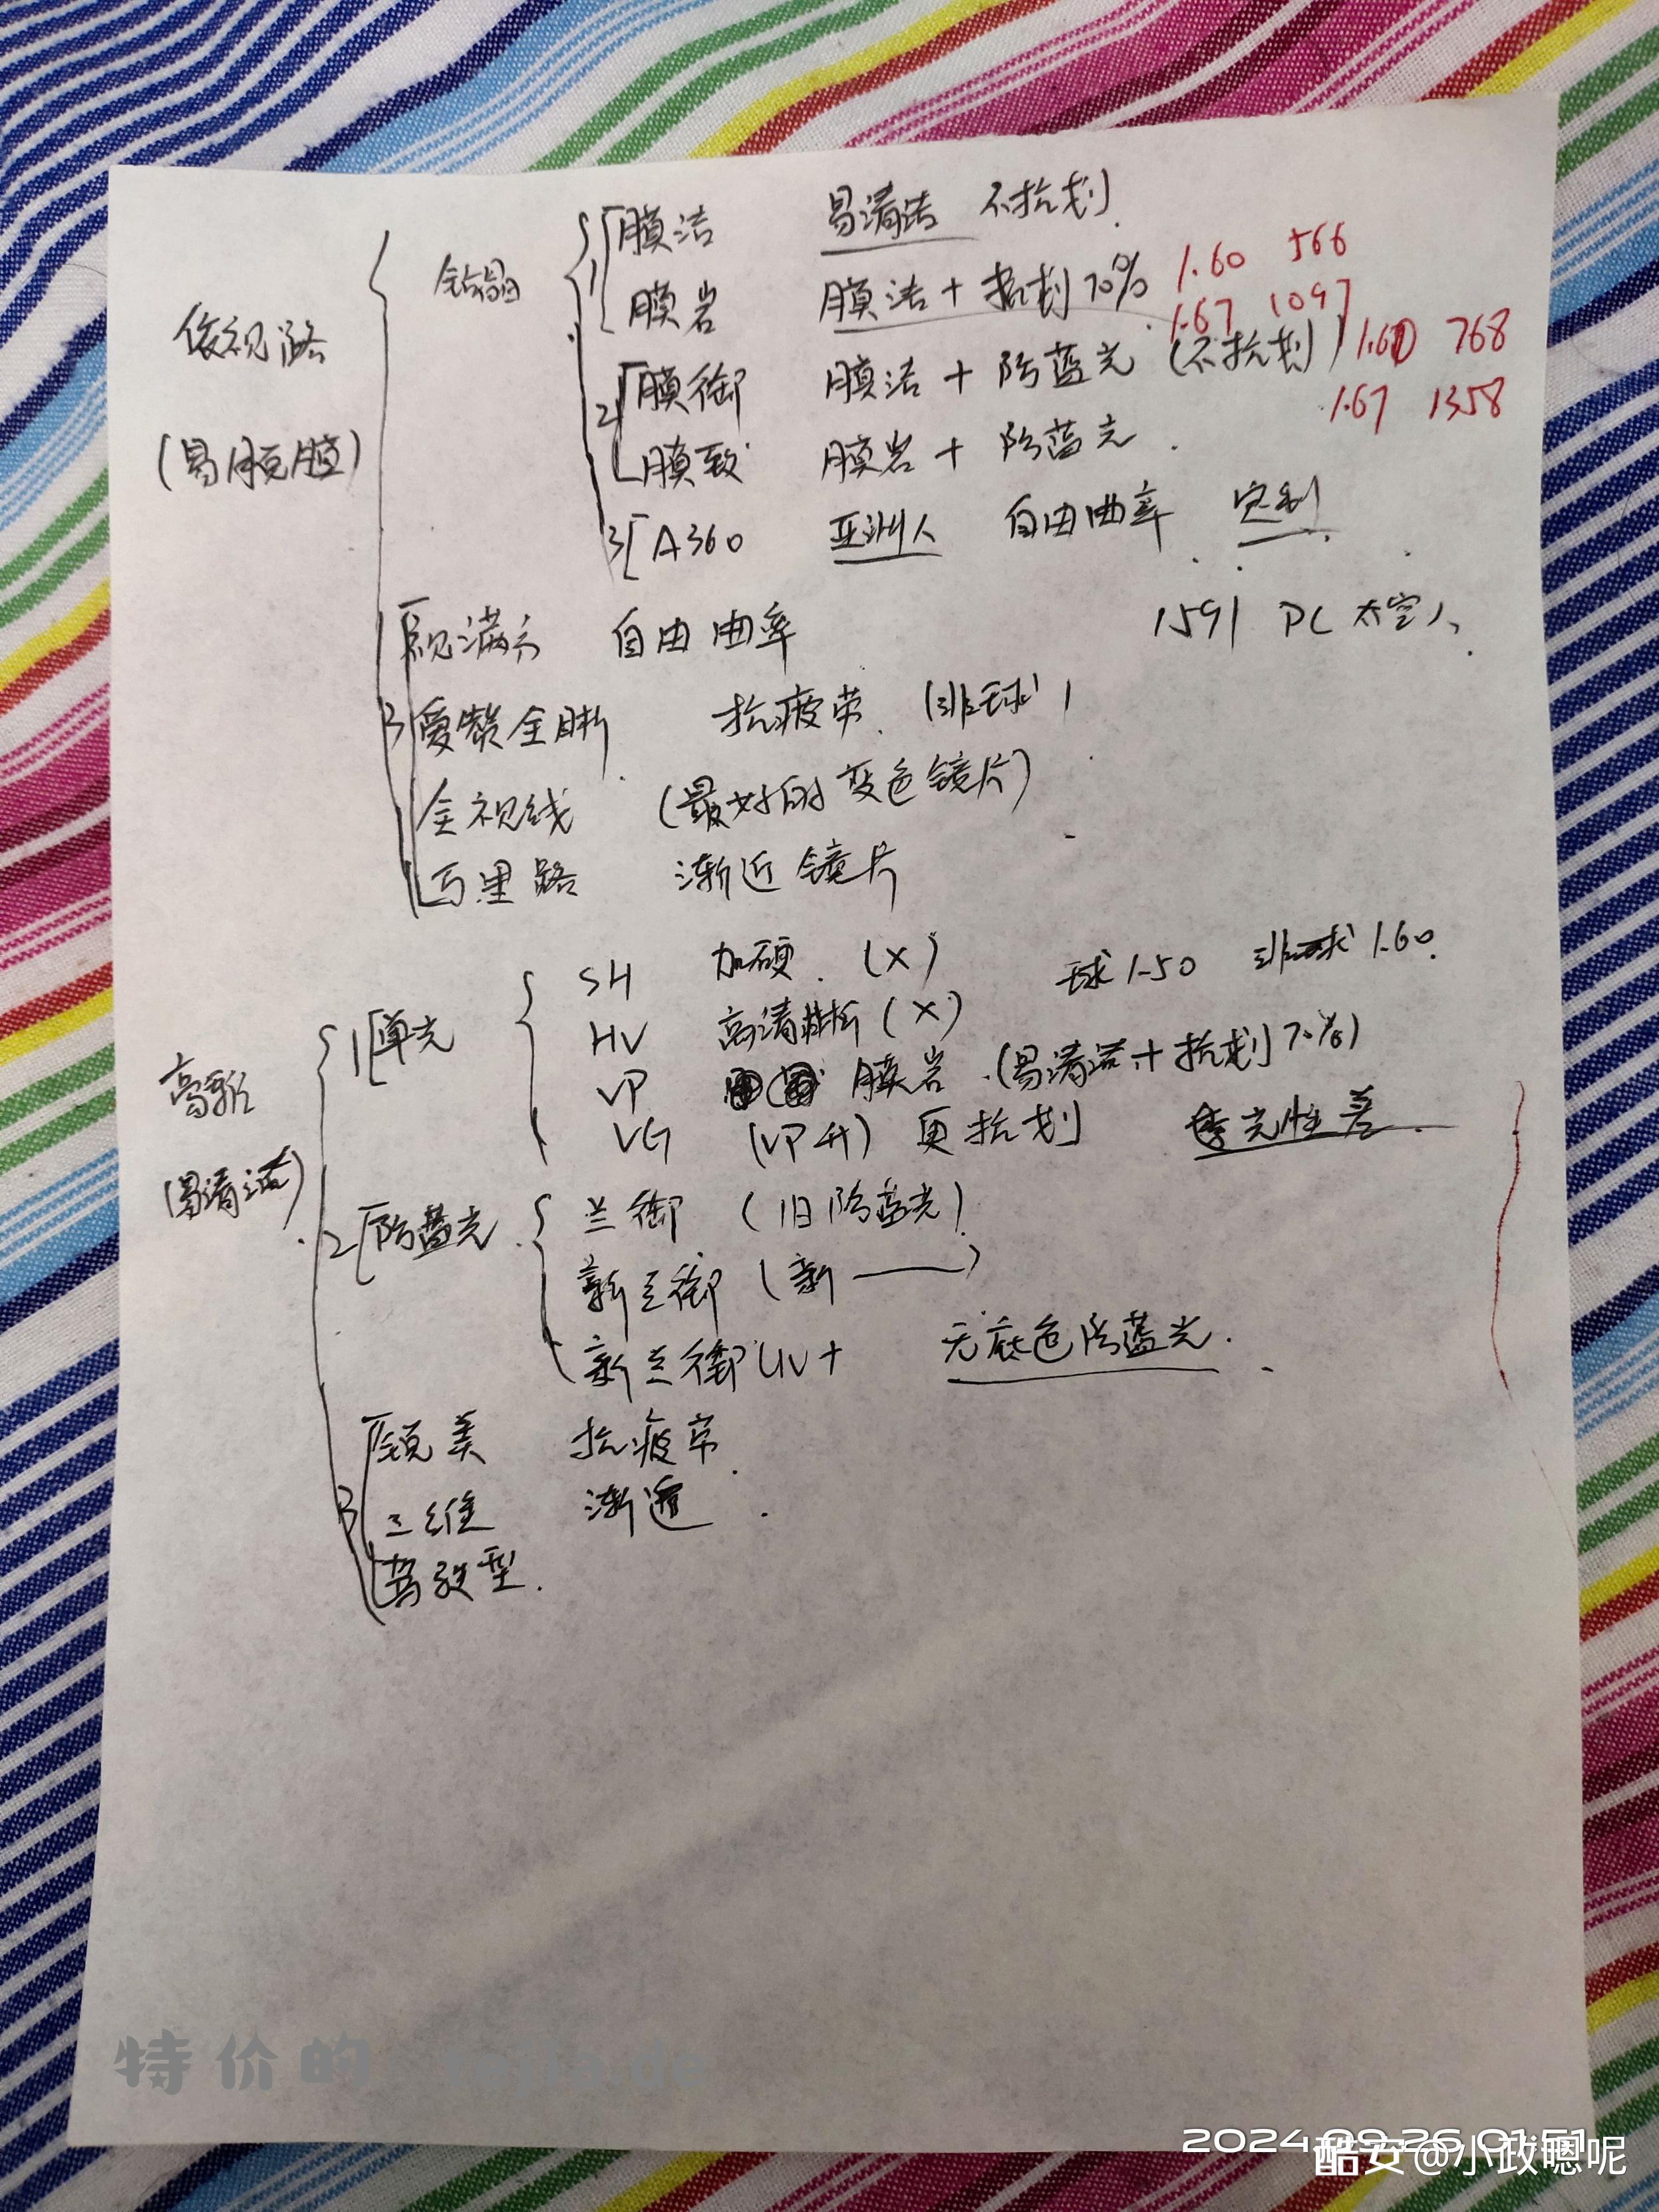 钻晶 1 膜洁 易清洁 不抗划
膜岩 膜洁 + 抗划 70% 1.60 566
1.67 1097
依视路 2 膜御 膜洁 + 防蓝光 (不抗划) 1.60 768
1.67 1358
膜致 膜岩 + 防蓝光
3 A360 亚洲人 自由曲率 定制
1591 PC 太空
满分 自由曲率
3 爱赞全晰 抗疲劳 (非球)
全视线 (最好的变色镜片)
万里路 渐近镜片
SH 加硬 (X) 球 1.50 非球 1.60
1 单光 HV 高清 (X)
VP 膜岩 (易清洁 + 抗划 70%)
VG (VP升) 更抗划 透光性差
(易清洁)
2 防蓝光 兰御 (旧防蓝光)
新兰御 (新 ——)
新兰御 UV+ 无底色防蓝光
锐美 抗疲劳
3 三维 渐进
驾驶型
特价的 tejia.de
2024.09.26 01:51
酷安@小政嗯呢